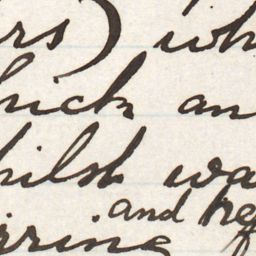 rs) wh
hick an
hilst wa
and he
rring